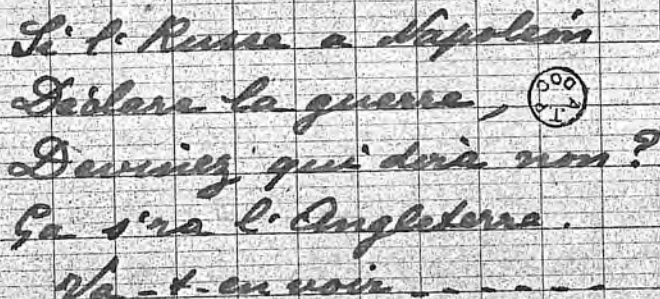 Si l' Russe a Napoléon
Déclare la guerre,
Devinez qui dira non?
Ça s'ra l'Angleterre.
Va-t-en voir ------
A.T.P. DOC